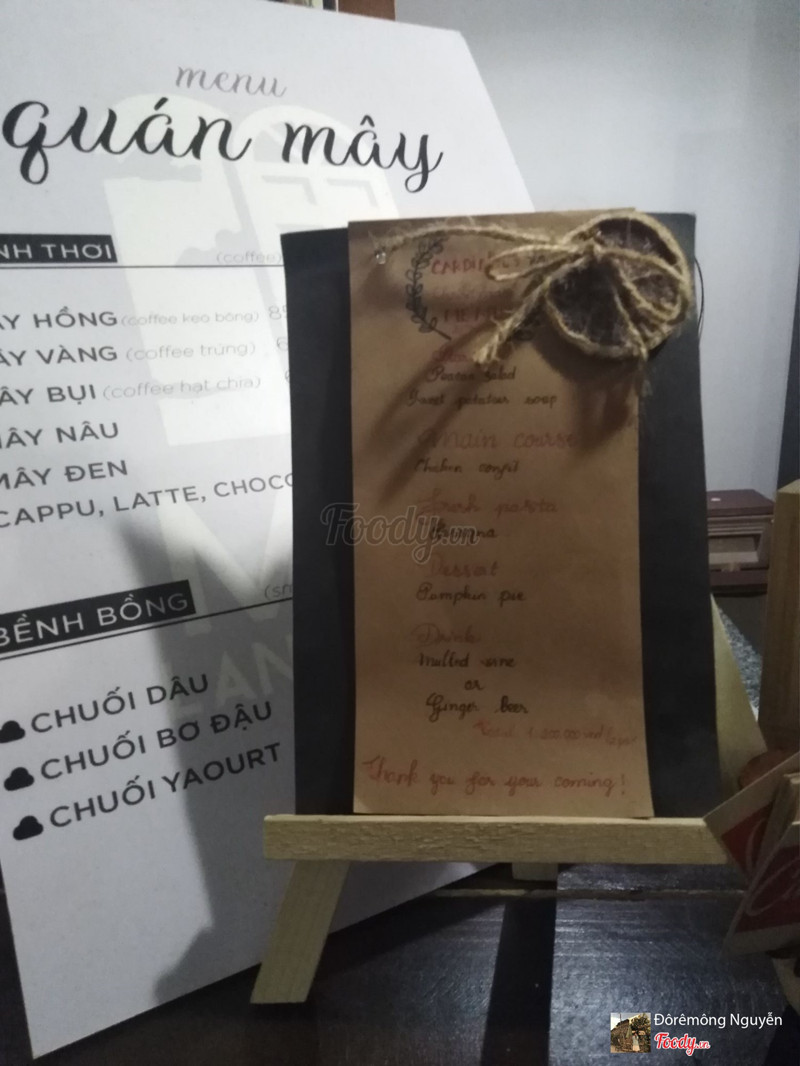 menu
quán mây
NH THƠI
(coffee)
ÂY HỒNG (coffee kẹo bông)
ÂY VÀNG (coffee trứng)
ÂY BỤI (coffee hạt chia)
ÂY NÂU
MÂY ĐEN
CAPPU, LATTE, CHOCO
BỀNH BỒNG
CHUỐI DÂU
CHUỐI BƠ ĐẬU
CHUỐI YAOURT
salad
Sweet potatoes soup
Main course
Chicken confit
Fresh pasta
Dessert
Pumpkin pie
Drink
Mulled wine
or
Ginger beer
Thank you for your coming!
Foody.vn
Đôrêmông Nguyễn
Foody.vn